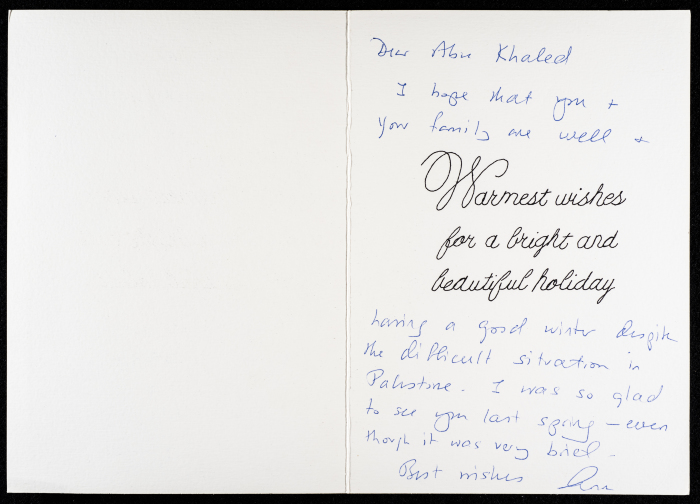 Dear Abu Khaled
I hope that you +
your family are well +
Warmest wishes
for a bright and
beautiful holiday
having a good winter despite
the difficult situation in
Palestine. I was so glad
to see you last spring – even
though it was very brief.
Best wishes Ann